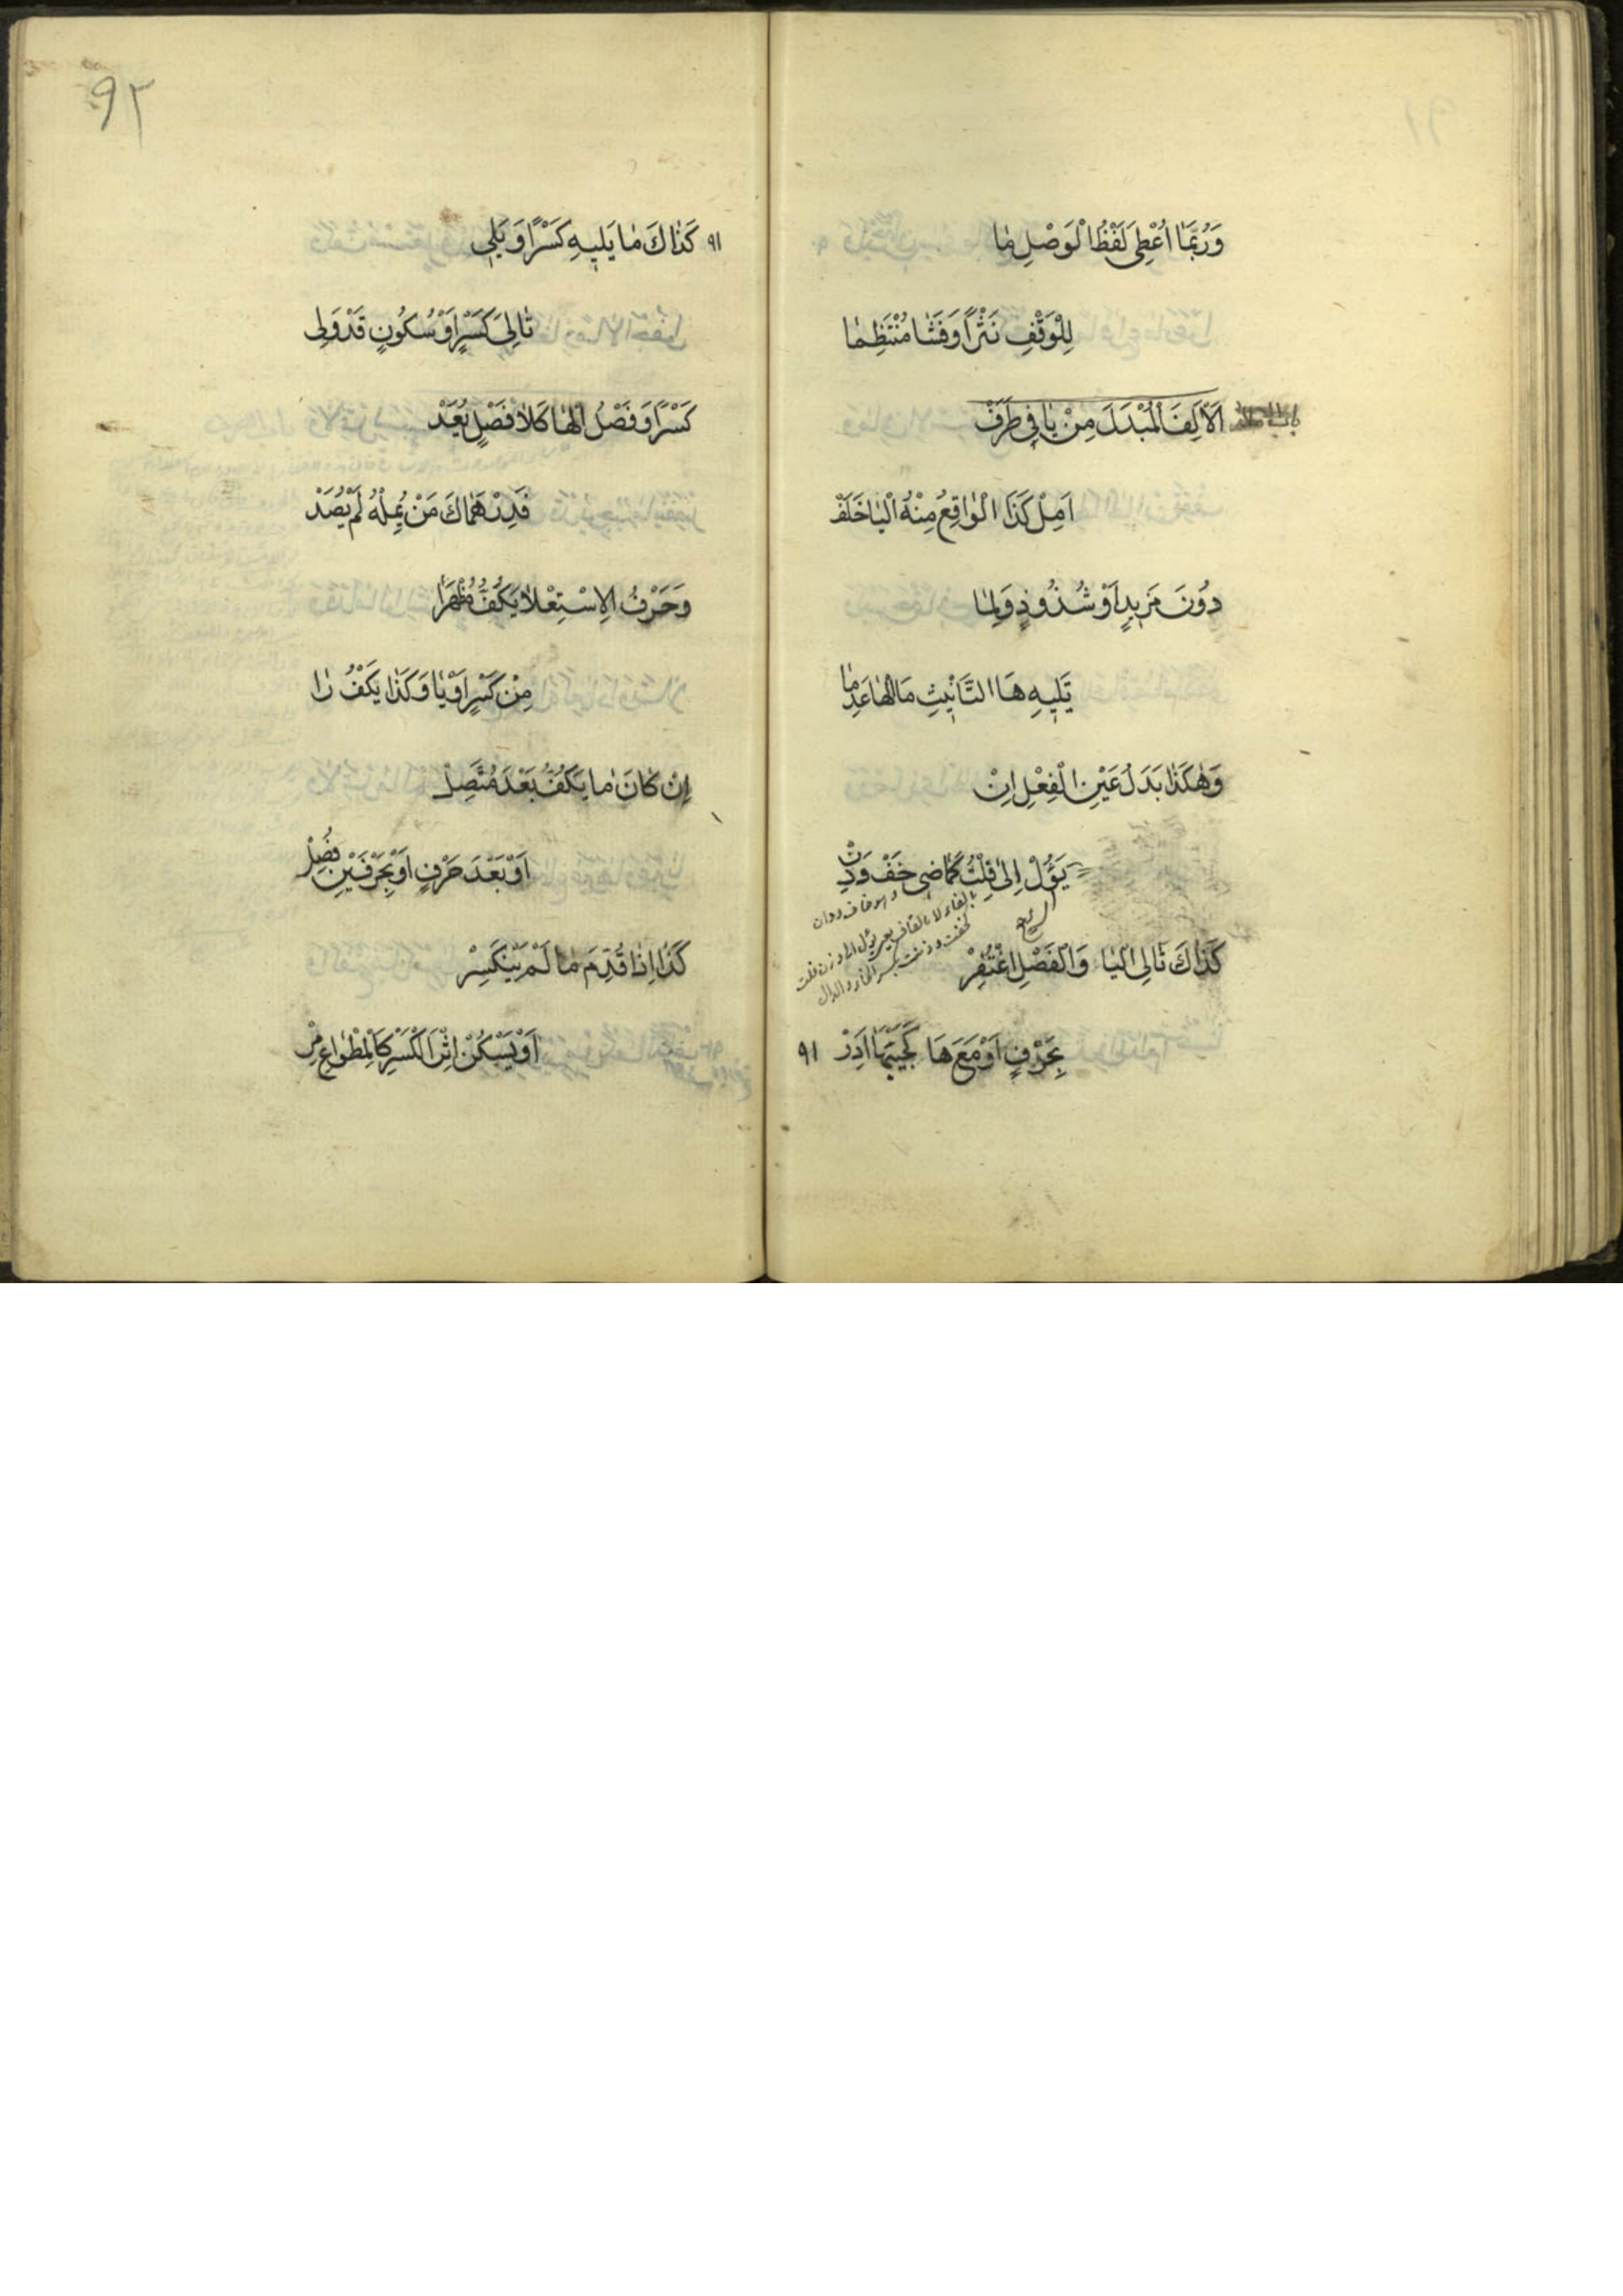 وَرُبَّمَا اُعْطِىَ لَفْظُ الْوَصْلِ مَا
لِلْوَقْفِ نَثْرًا وَفَشَا مُنْتَظِمَا
اَلْاَلِفَ الْمُبْدَلَ مِنْ يَا فِى طَرَفْ
اَمِلْ كَذَا الْوَاقِعُ مِنْهُ الْيَا خَلَفْ
دُونَ مَزِيدٍ اَوْ شُذُوذٍ وَلِمَا
تَلِيهِ هَا التَّانِيثِ مَا الْهَا عَدِمَا
وَهٰكَذَا بَدَلُ عَيْنِ الْفِعْلِ اِنْ
يَؤُلْ اِلَى فِلْتُ كَمَاضِى خَفْ وَدِنْ
كَذَاكَ تَالِى الْيَا وَالْفَصْلِ اغْتُفِرْ
بِحَرْفٍ اَوْ مَعَ هَا كَجَيْبَهَا اَدِرْ
٩١
٩٢
٩١ كَذَاكَ مَا يَلِيهِ كَسْرًا وَ يَلِى
تَالِىَ كَسْرٍ اَوْ سُكُونٍ قَدْ وَلِى
كَسْرًا وَفَصْلُ الْهَا كَلَا فَصْلٍ يُعَدْ
فَدِرْهَمَاكَ مَنْ يُمِلْهُ لَمْ يُصَدْ
وَحَرْفُ الِاسْتِعْلَا يَكُفُّ مُظْهَرَا
مِنْ كَسْرٍ اَوْ يَا وَكَذَا يَكُفُّ رَا
اِنْ كَانَ مَا يَكُفُّ بَعْدَ مُتَّصِلْ
اَوْ بَعْدَ حَرْفٍ اَوْ بِحَرْفَيْنِ فُصِلْ
كَذَا اِذَا قُدِّمَ مَا لَمْ يَنْكَسِرْ
اَوْ يَسْكُنْ اِثْرَ الْكَسْرِ كَالْمِطْوَاعِ مِرْ